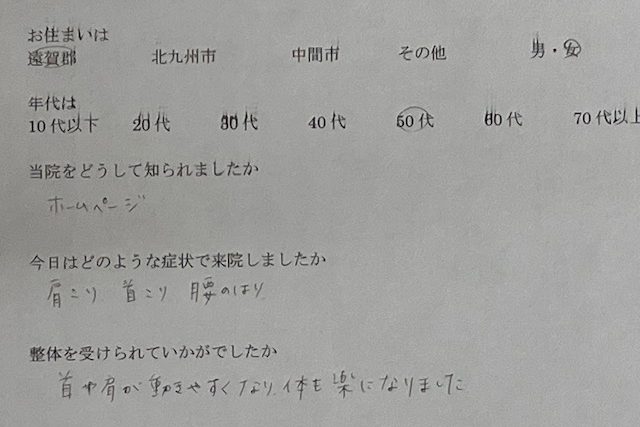 お住まいは
遠賀郡 北九州市 中間市 その他 男・女
年代は
10代以下 20代 30代 40代 50代 60代 70代以上
当院をどうして知られましたか
ホームページ
今日はどのような症状で来院しましたか
肩こり 首こり 腰のはり
整体を受けられていかがでしたか
首や肩が動きやすくなり、体も楽になりました